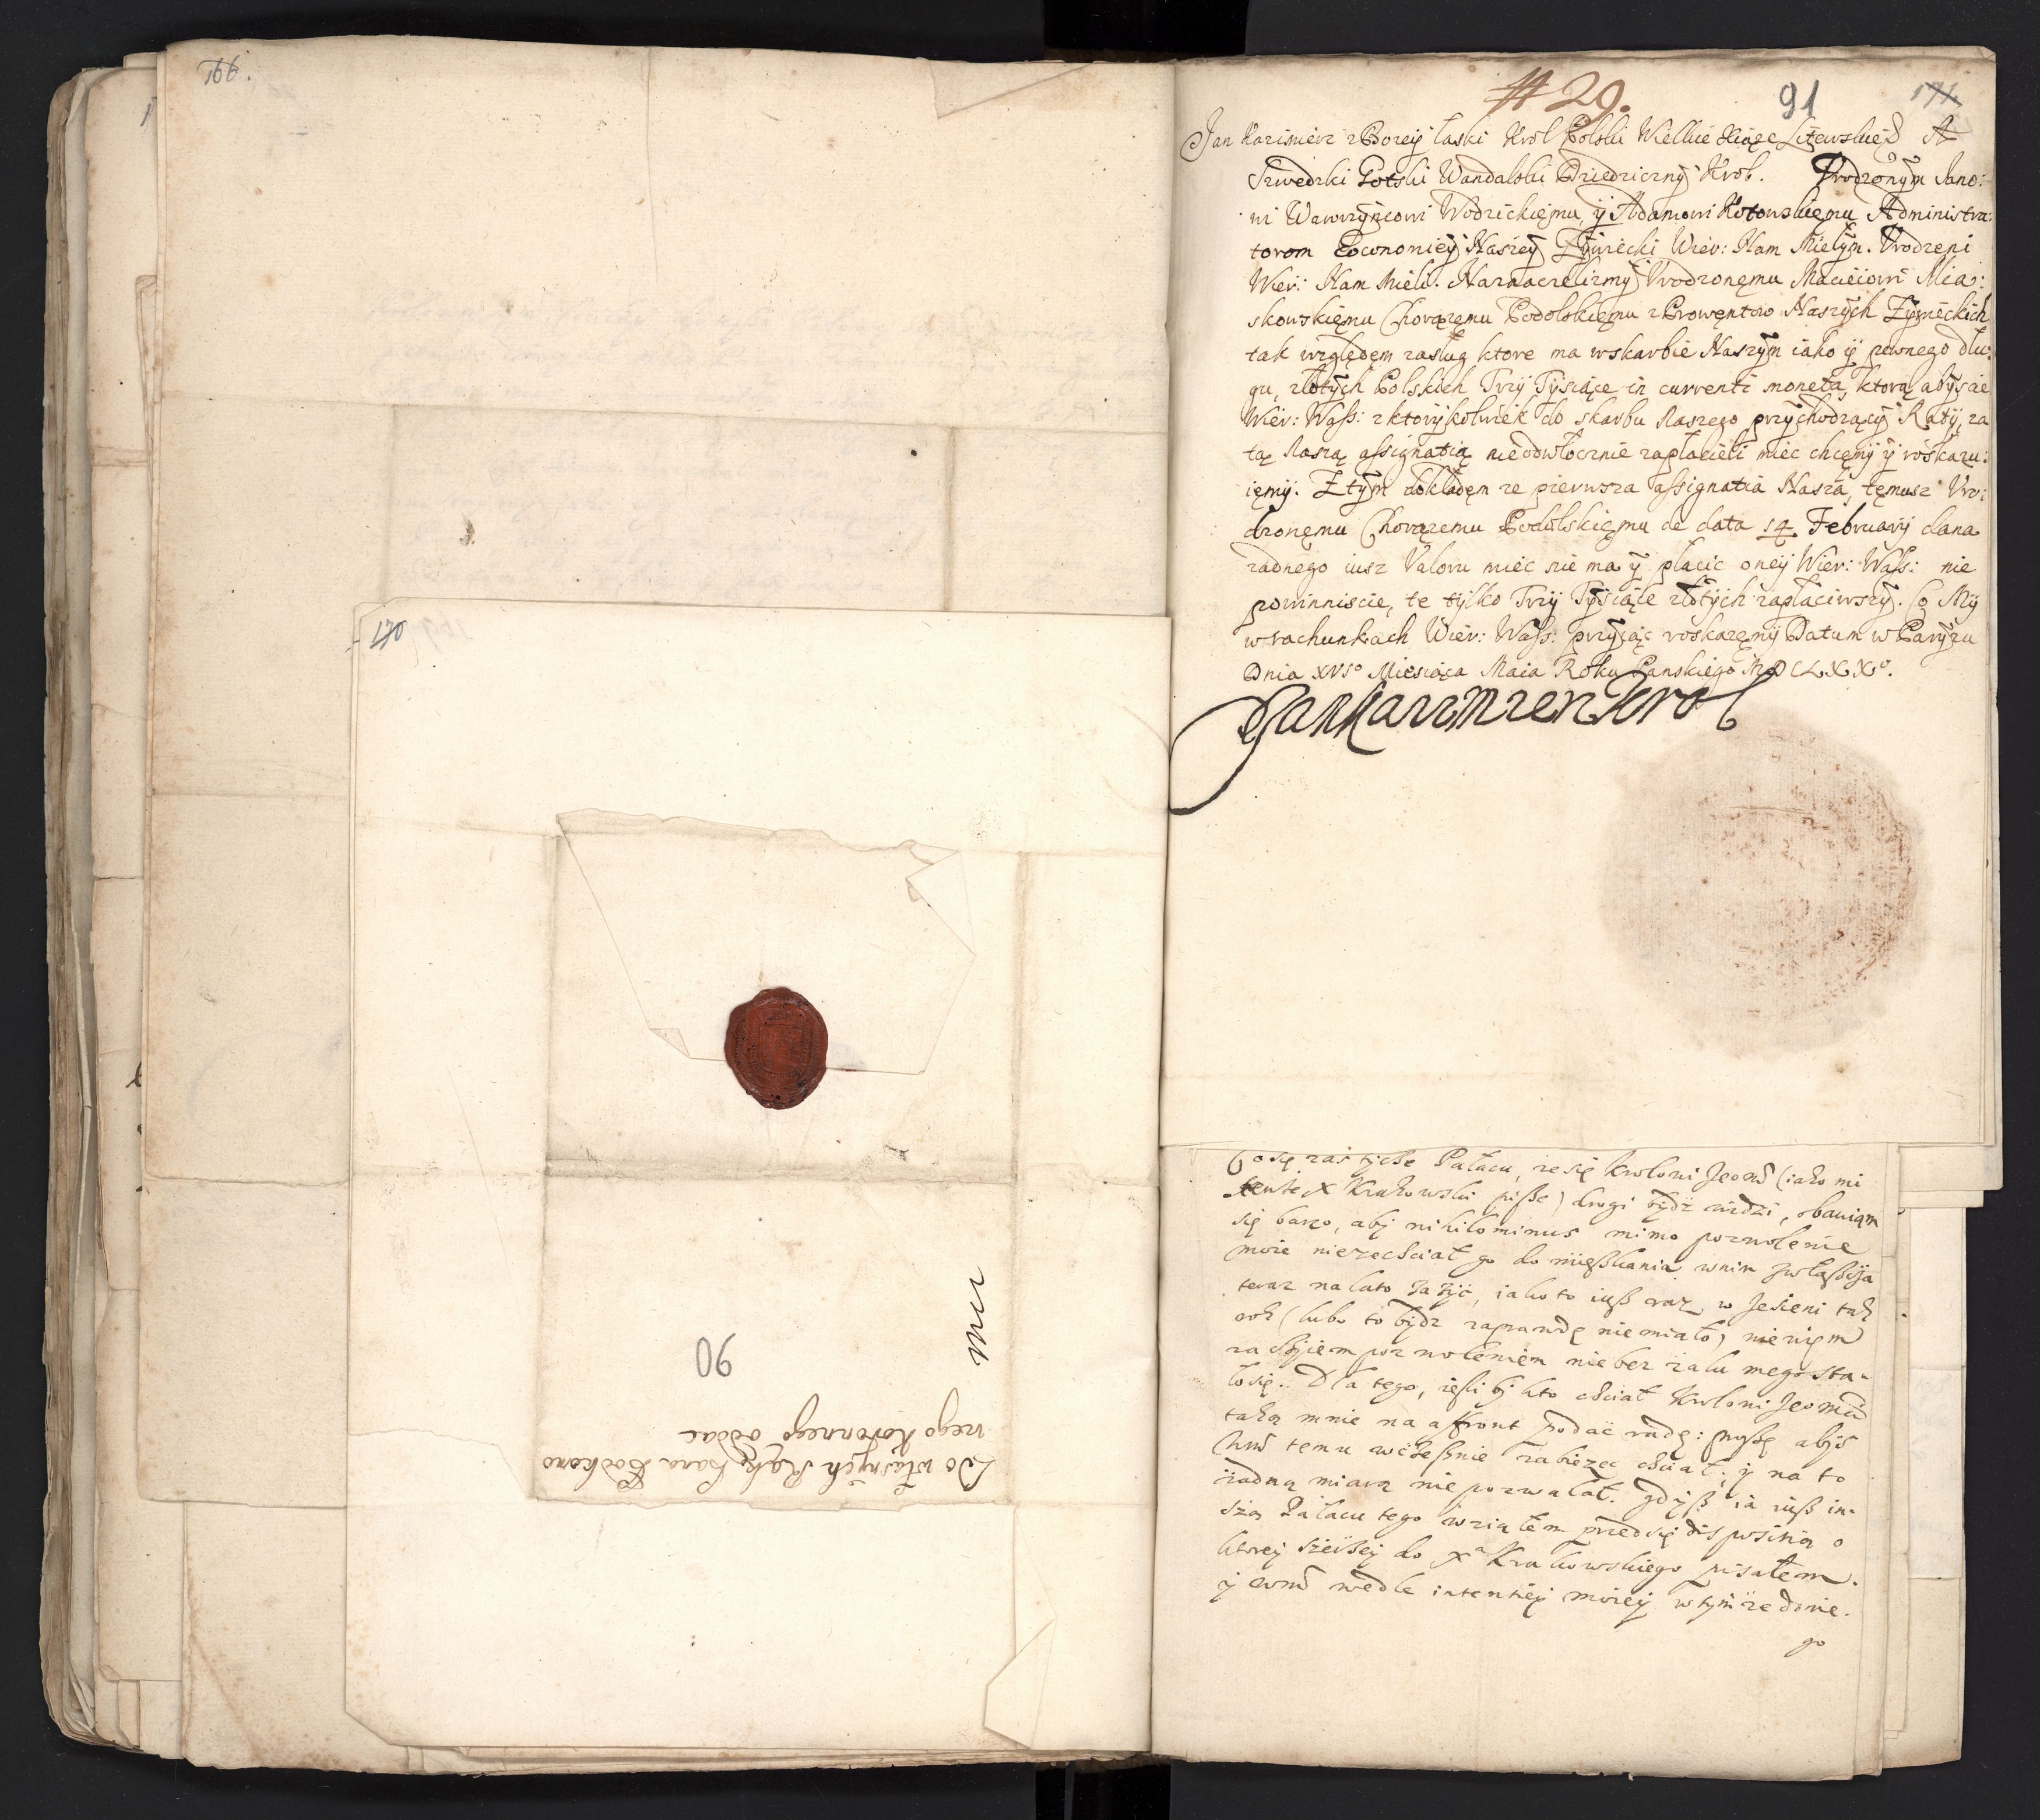 166.
170
90
Do własnÿch Rąk Pana Podkomo
rzego koronnego oddac
# 29.
91
171
Jan Kazimierz z Bozeÿ łaski Krol Polski Wielkie Xiąze Litewskie
Szwedzki Gotski Wandalski Dziedzicznÿ Krol. Vrodzonÿm Jano:
wi Wawrzÿncowi Wodzickiemu, ÿ Adamowi Kotowskiemu Administra:
torom Eoconomieÿ Naszeÿ Zÿwiecki Wier: Nam Miełÿm. Vrodzeni
Wier: Nam Mieli. Naznaczelizmÿ Vrodzonemu Macieiowi Mia:
skowskiemu Chorązemu Podolskiemu z Prowentow Naszÿch Zÿwieckich
tak względem zasług ktore ma w skarbie Naszÿm iako ÿ pewnego dłu:
gu, złotÿch Polskich Trzÿ Tÿsiące in currenti moneta, ktorą abÿscie
Wier: Wass: z ktorÿkolwiek do skarbu Naszego przÿchodzącÿ Ratÿ, za
tą Naszą assignatią nieodwłocznie zapłacieli miec chcemÿ ÿ roskazu:
iemÿ. Z tÿm dokładem ze pierwsza assignatia Nasza, temusz Vro:
dzonemu Chorązemu Podolskiemu de data 14 Februarÿ dana
zadnego iusz Valoru miec nie ma ÿ płacic oneÿ Wier: Wass: nie
powinniscie, te tÿlko Trzÿ Tÿsiące złotÿch zapłaciwszÿ. Co Mÿ
w rachunkach Wier: Wass: przÿiąc roskazemÿ Datum w Parÿzu
Dnia XVIo Miesiąca Maia Roku Panskiego MDCLXXo.
Jan Kazimierz Krol
Co się zas tycze Pałacu, ze się krolowi Jeomć (iako mi
tenże X Krakowski pisze) drogi bydz widzi, obawiam
się barzo, aby nihilominus mimo pozwolenie
moie niezechciał go do mieszkania w nim zwłaszcza
teraz na lato zazyć, iako to iusz raz w Jesieni tak
rok (lubo to bydz zaprawdę nie miało) niewiem
za czyiem pozwoleniem nie bez żalu mego sta-
ło się. Dla tego, iesli by kto chciał Krolowi Jeomci
taką mnie na affront podać radę: proszę abys
temu wcześnie zabiezec chciał, y na to
żadną miarą nie pozwalał. gdysz ia iusz in-
szą Pałacu tego wziąłem przed się dispositią o
ktorey szerzey do Xa Krakowskiego pisałem.
y wedle intentiey moiey w tym ze mnie.
go